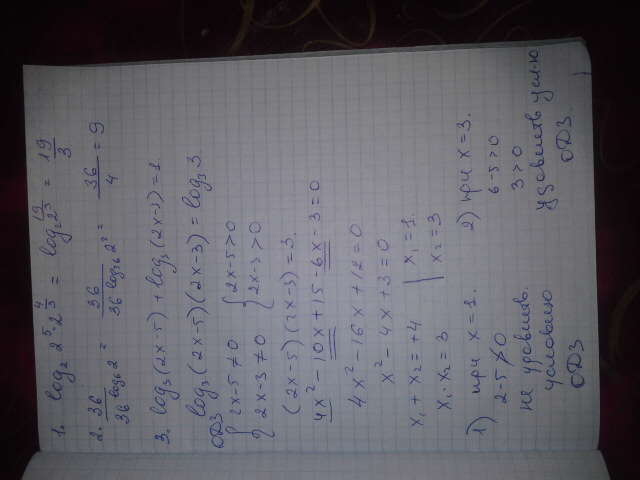 1. log₂ 2⁵·2^(4/3) = log₂2^(19/3) = 19/3
2. 36/36^(log₆2) = 36/36^(log₃₆2²) = 36/4 = 9
3. log₃(2x-5) + log₃(2x-3) = 1.
log₃(2x-5)(2x-3) = log₃3.
ОДЗ
{ 2x-5 ≠ 0 { 2x-5 > 0
{ 2x-3 ≠ 0 { 2x-3 > 0
(2x-5)(2x-3) = 3.
4x² - 10x + 15 - 6x - 3 = 0
4x² - 16x + 12 = 0
x² - 4x + 3 = 0
x₁ + x₂ = +4 | x₁ = 1.
x₁ · x₂ = 3 | x₂ = 3
1) при x = 1.
2-5 ≯ 0
не удовлетв.
условию
ОДЗ
2) при x = 3.
6-5 > 0
3 > 0
удовлетв усл-ю
ОДЗ.